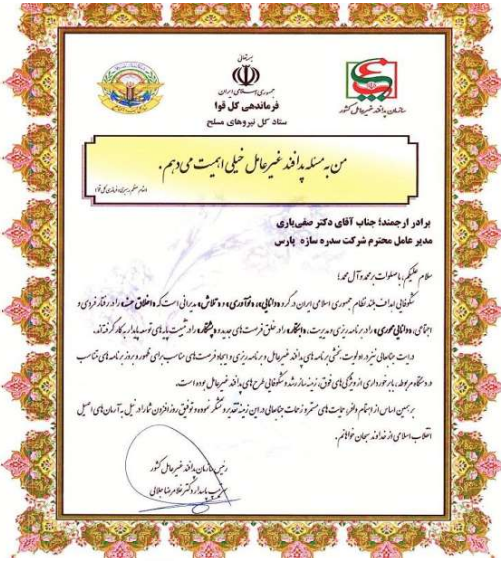 بسمه تعالی
جمهوری اسلامی ایران
فرماندهی کل قوا
ستاد کل نیروهای مسلح
سازمان پدافند غیرعامل کشور
من به مسئله پدافند غیرعامل خیلی اهمیت می دهم.
برادر ارجمند؛ جناب آقای دکتر صفی‌یاری
مدیر عامل محترم شرکت سدره سازه پارس
سلام علیکم؛ با صلوات بر محمد و آل محمد؛
شکوفایی اهداف بلند نظام جمهوری اسلامی ایران در گرو «دانایی»، «نوآوری» و «تلاش» مدیرانی است که «اخلاق حسنه» را در رفتار فردی و
اجتماعی، «دانایی محوری» را در برنامه‌ریزی و مدیریت، «ابتکار» را در خلق فرصت‌های جدید و «پشتکار» را در تثبیت پایه‌های توسعه پایدار به کار گرفته‌اند.
درایت جنابعالی نیز در اولویت بخشی برنامه‌های پدافند غیرعامل و برنامه‌ریزی و ایجاد فرصت‌های مناسب برای ظهور و بروز برنامه‌های متناسب
در دستگاه مربوطه، با برخورداری از ویژگی‌های فوق، زمینه‌ساز رشد و شکوفایی طرح‌های پدافند غیرعامل بوده است.
بر همین اساس از اهتمام وافر، حمایت‌های مستمر و زحمات جنابعالی در این زمینه تقدیر و تشکر نموده و توفیق روزافزون شما را در نیل به آرمان‌های اصیل
انقلاب اسلامی از خداوند سبحان خواهانم.
رئیس سازمان پدافند غیرعامل کشور
سرتیپ پاسدار دکتر غلامرضا جلالی